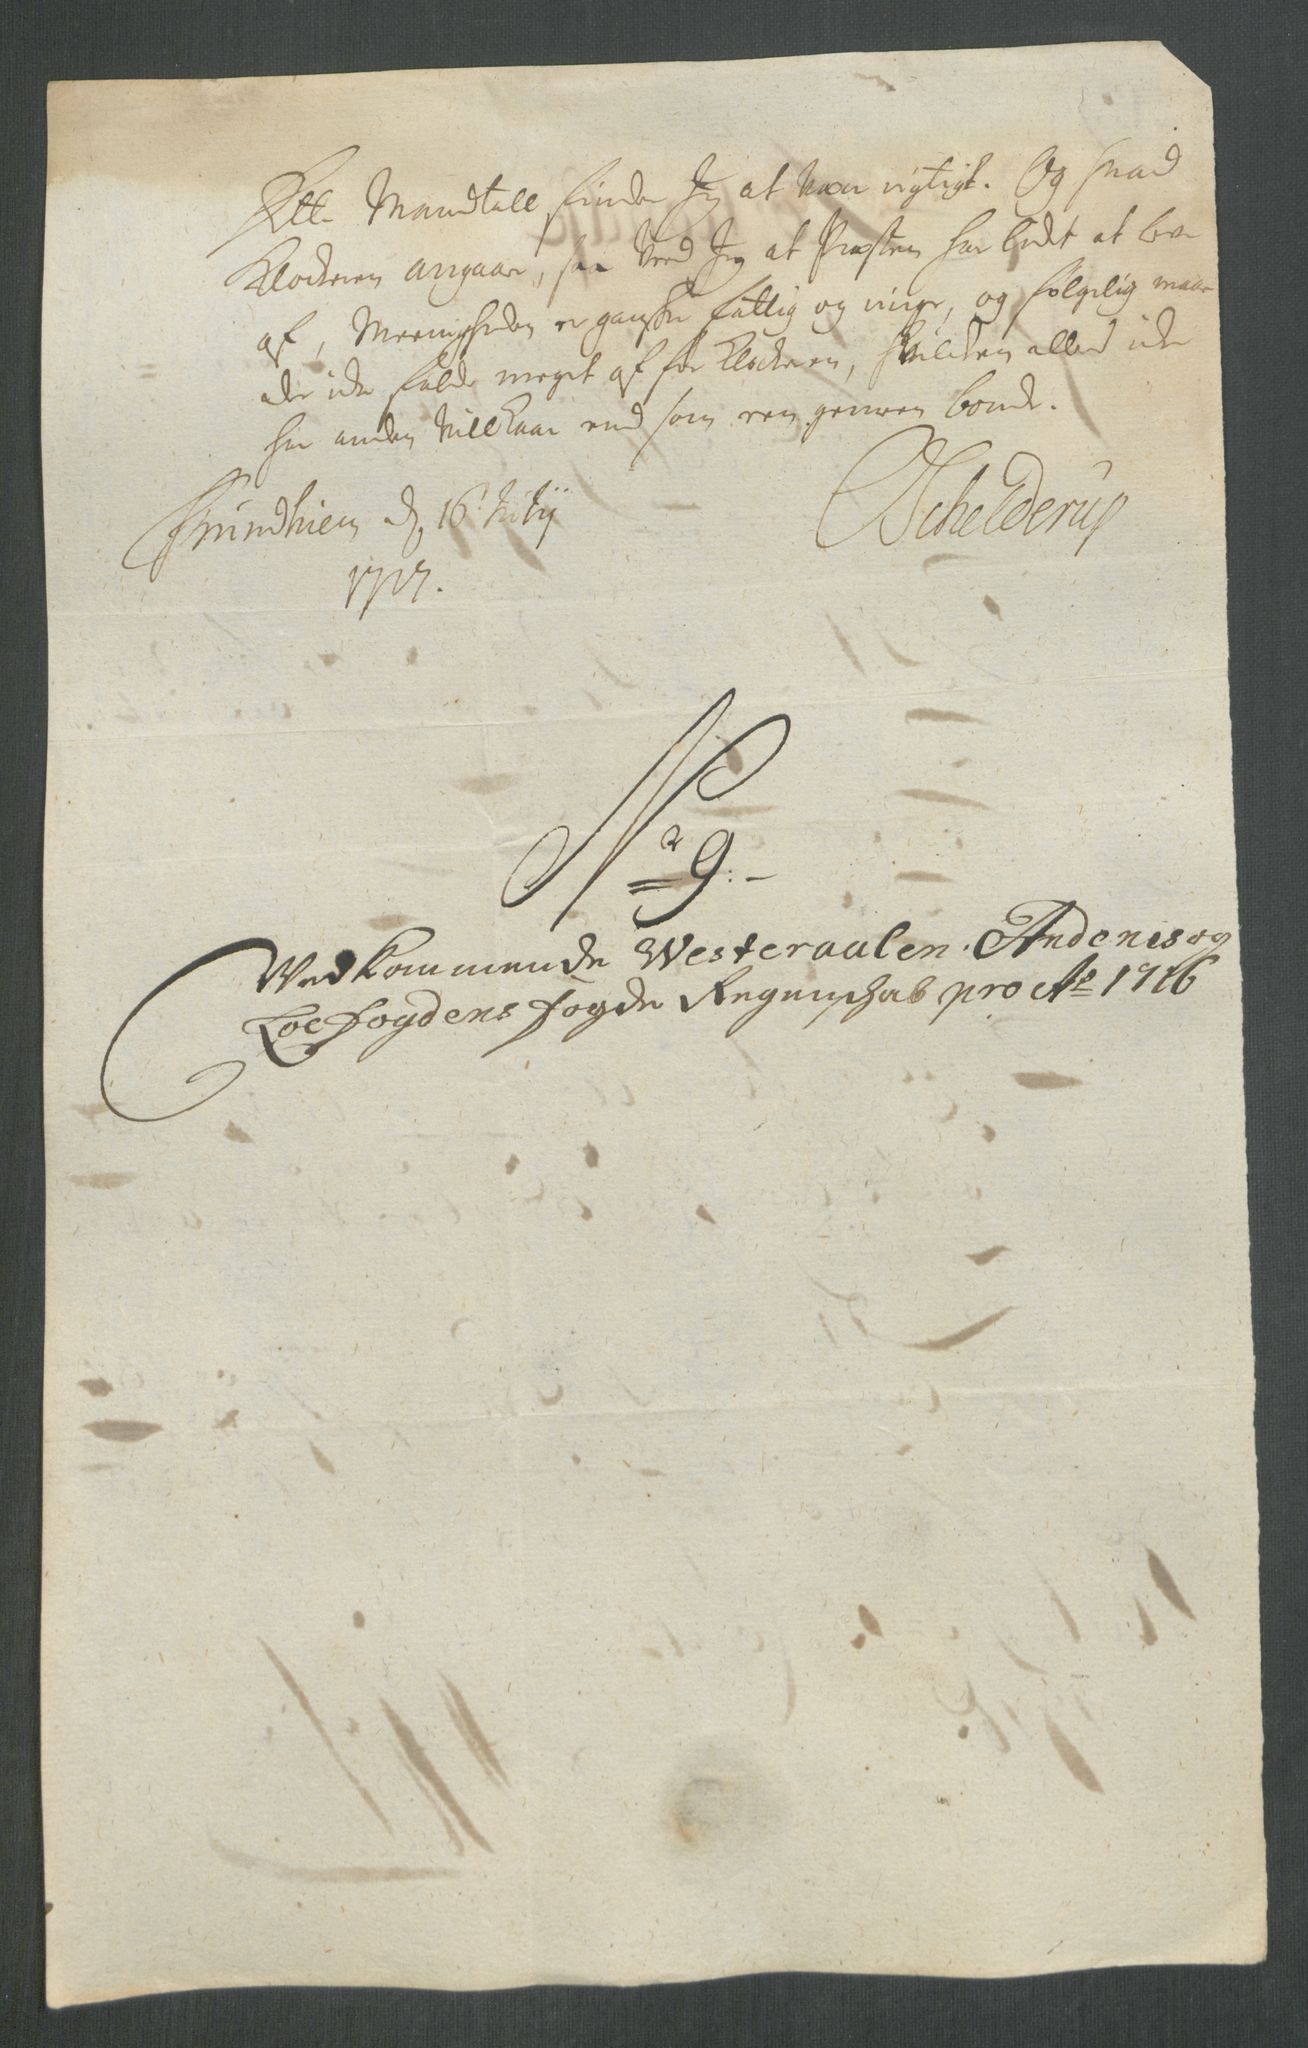 Dette Mandtall finder Jeg at være rigtigt. Og hvad
Klockeren angaar, saa veed Jeg at Præsten har lidt at leve
af, Meenigheden er gandske fattig og ringe, og følgelig maae
der icke falde meget af for Klockeren, hvilcken alle icke
har anden villkaar end som een gemeen bonde.
Trundhiem d. 16 Julij
1717.
Schelderup
No 9:-
Vedkommende Westeraalen. Andenis og
Loefoydens fogde Regenschab pro Ao 1716